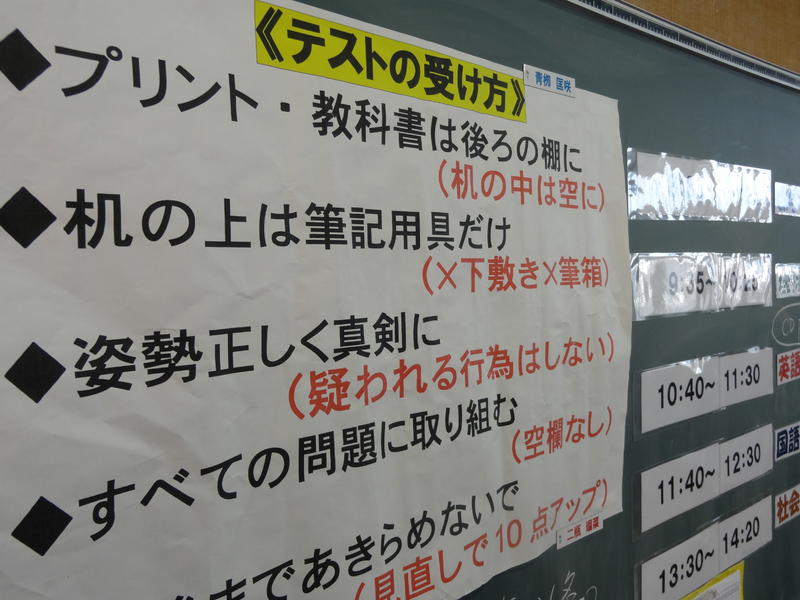 《テストの受け方》
青栁 匡咲
◆プリント・教科書は後ろの棚に
(机の中は空に)
◆机の上は筆記用具だけ
(×下敷き×筆箱)
◆姿勢正しく真剣に
(疑われる行為はしない)
◆すべての問題に取り組む
(空欄なし)
まであきらめないで
(見直しで10点アップ)
二瓶 瑠菜
10:40~11:30
英語
11:40~12:30
国語
13:30~14:20
社会